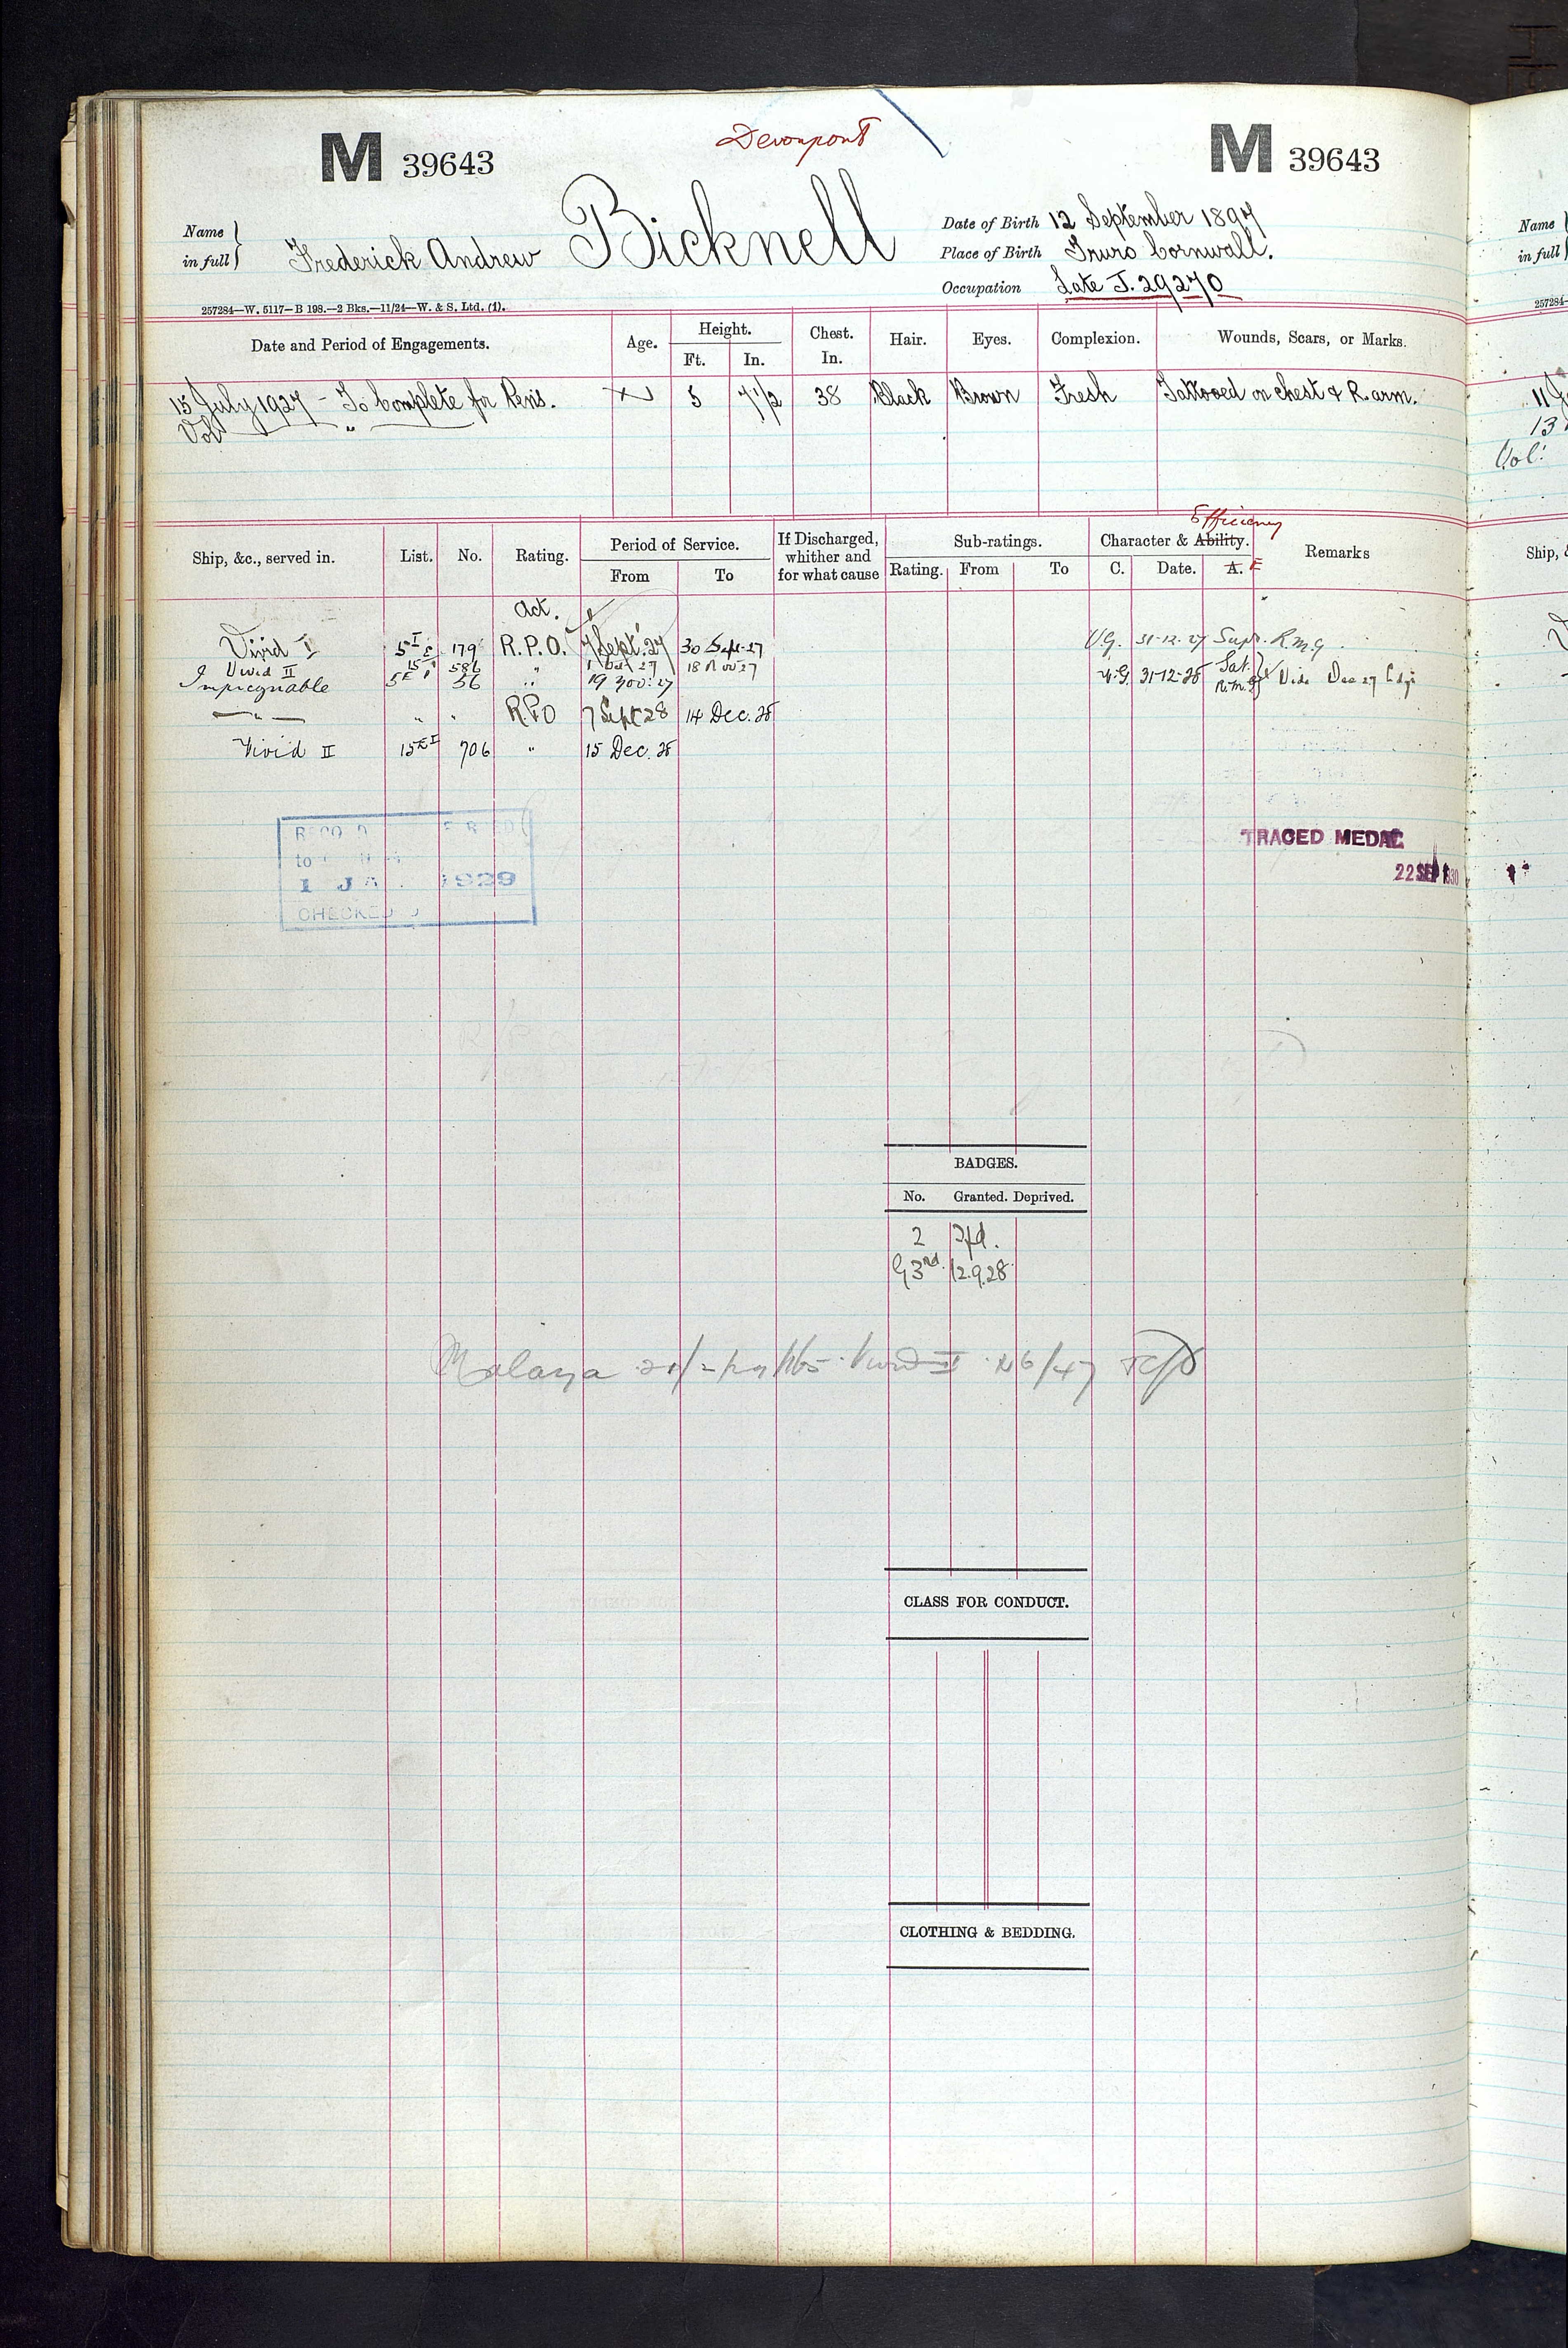 Devonport
M 39643 M 39643
Name in full } Frederick Andrew Bicknell
Date of Birth 12 September 1897
Place of Birth Truro Cornwall.
Occupation Late J. 29270
257284—W. 5117—B 198.—2 Bks.—11/24—W. & S. Ltd. (4).
Date and Period of Engagements. Age. Height. Ft. In. Chest. In. Hair. Eyes. Complexion. Wounds, Scars, or Marks.
15 July 1927 - To Complete for Pens. 5 7 1/2 38 Black Brown Fresh Tattooed on chest & R. arm.
Vol "
Efficiency
Ship, &c., served in. List. No. Rating. Period of Service. From To If Discharged, whither and for what cause Sub-ratings. Rating. From To Character & Ability. C. Date. A. E Remarks
Act.
Vivid I 5 179 R.P.O. 7 Sept. 27 30 Sept. 27 V.G. 31-12-27 Supr. R.M.G
Vivid II 15 586 " 1 Oct 27 18 Nov 27
Impregnable 5 56 " 19 Nov: 27 V.G. 31-12-28 Sat. R.M.G } Vide Dec 27
— " — " " R.P.O 7 Sept 28 14 Dec. 28
Vivid II 15 706 " 15 Dec. 28
to
1 JA 1929
CHECKED
TRACED MEDAL
22 SEP 1930
BADGES.
No. Granted. Deprived.
2 Tfd.
G 3rd. 12.9.28
Malaya Vivid II 46/47
CLASS FOR CONDUCT.
CLOTHING & BEDDING.
Name in full }
257284-
11
13
Vol:
Ship,